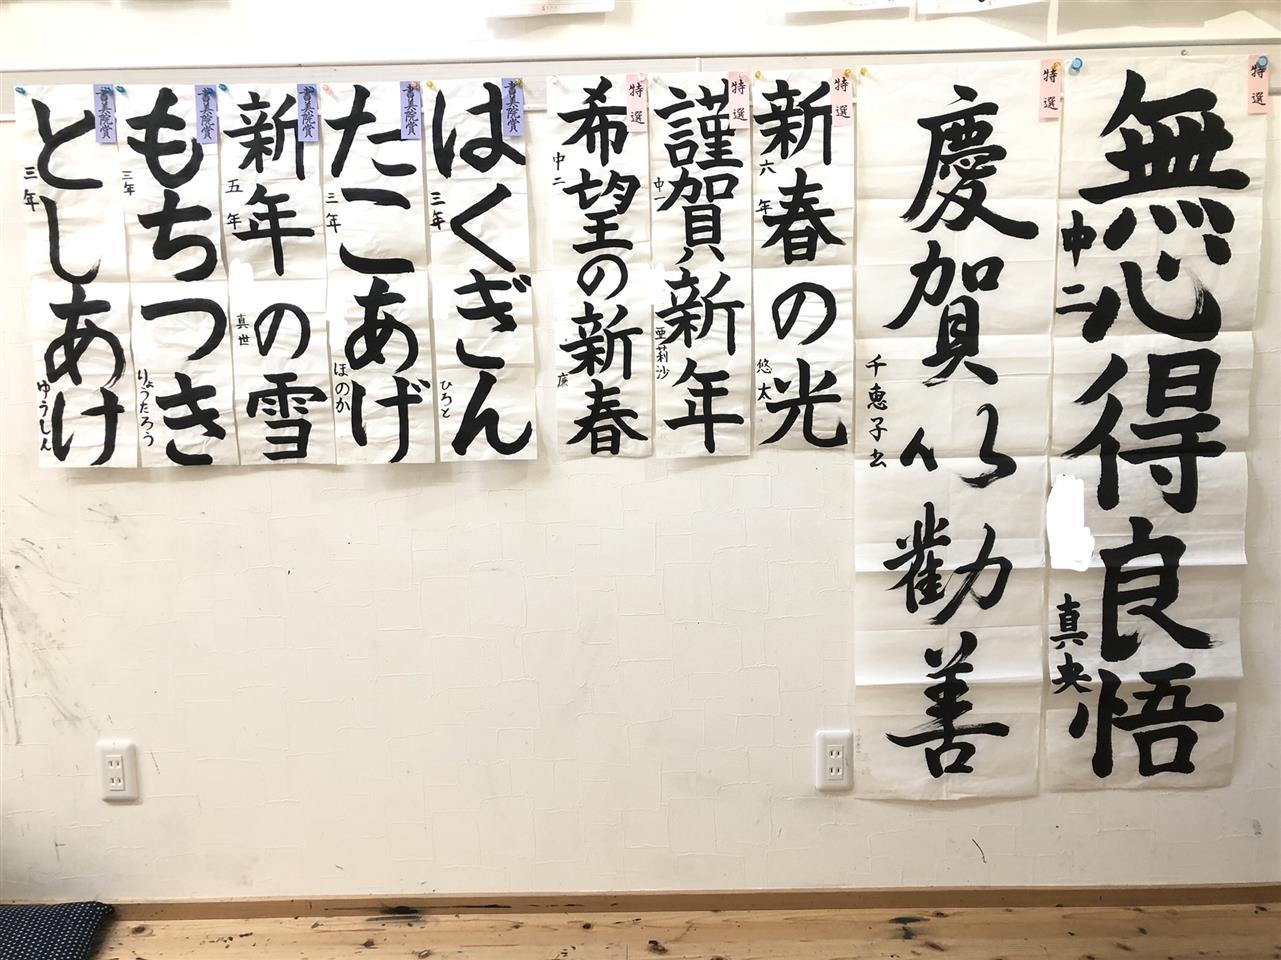 特選
無心得良悟
中二
真央
特選
慶賀以勧善
千恵子書
特選
新春の光
六年
悠太
特選
謹賀新年
中一
亜莉沙
特選
希望の新春
中二
廉
書美院賞
はくぎん
三年
ひろと
書美院賞
たこあげ
三年
ほのか
書美院賞
新年の雪
五年
真世
書美院賞
もちつき
三年
りょうたろう
書美院賞
としあけ
三年
ゆうしん